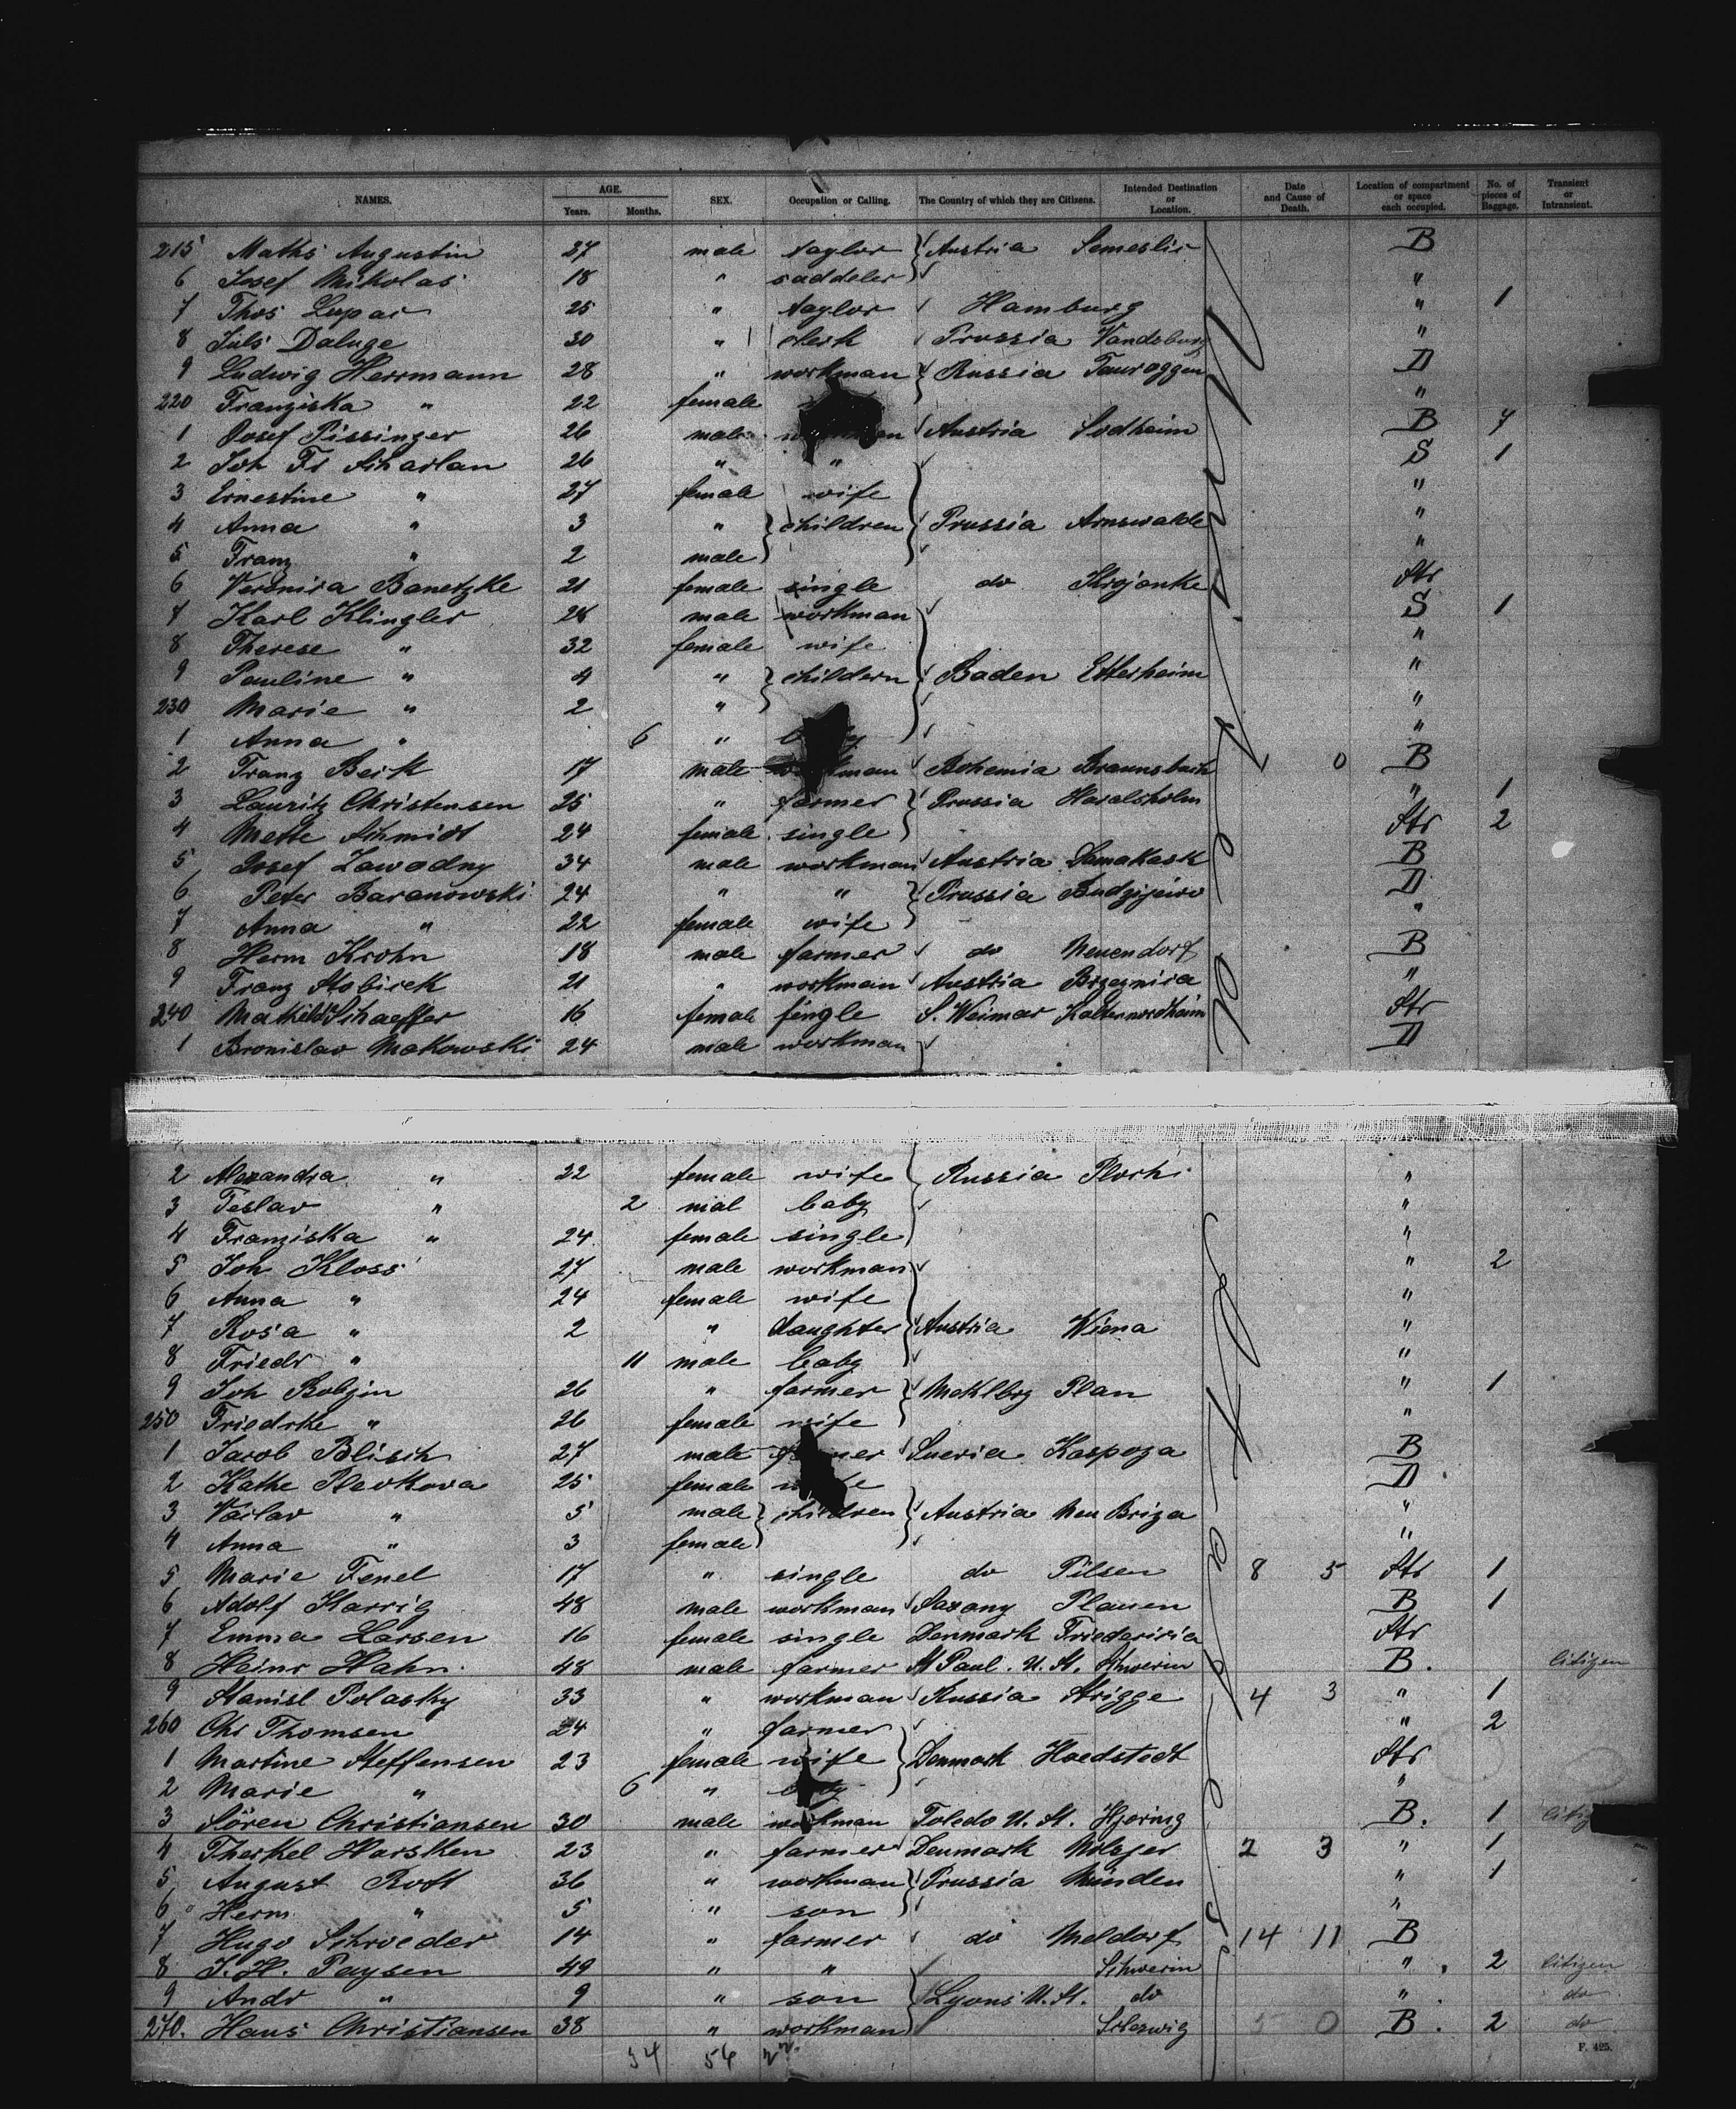 NAMES. AGE. Years. Months. SEX. Occupation or Calling. The Country of which they are Citizens. Intended Destination or Location. Date and Cause of Death. Location of compartment or space each occupied. No. of pieces of Baggage. Transient or Intransient.
215 Maths Augustin 27 male taylor Austria Semeslie B
6 Josef Mikolas 18 " saddeler "
7 Thos Lupar 25 " taylor Hamburg " 1
8 Juls Daluge 30 " clerk Prussia Vandsburg "
9 Ludwig Herrmann 28 " workman Russia Tauroggen D
220 Franziska " 22 female "
1 Josef Pissinger 26 male Austria Sodheim B 7
2 Joh Fr Scharlan 26 " " S 1
3 Ernestine " 27 female wife "
4 Anna " 3 " children Prussia Arnswalde "
5 Franz " 2 male "
6 Veronica Banetzke 21 female single do Krojanke Str
7 Karl Klingler 28 male workman S 1
8 Therese " 32 female wife "
9 Pauline " 4 " childern Baden Etterheim "
230 Marie " 2 " "
1 Anna " 6 " "
2 Franz Beik 17 male workman Bohemia Braunsbach 0 B
3 Lauritz Christensen 25 " farmer Prussia Haralsholm " 1
4 Mette Schmidt 24 female single Str 2
5 Josef Zawodny 34 male workman Austria B
6 Peter Baranowski 24 " " Prussia D
7 Anna " 22 female wife "
8 Herm Krohn 18 male farmer do Neuendorf B
9 Franz Stobicek 21 " workman Austria Brzeznica "
240 Mathild Schaeffer 16 female single S. Weimar Kaltennordheim Str
1 Bronislav Makowski 24 male workman D
2 Alexandra " 22 female wife Russia Plocki "
3 Teslav " 2 mal baby "
4 Franziska " 24 female single "
5 Joh Kloss 27 male workman " 2
6 Anna " 24 female wife "
7 Rosa " 2 " daughter Austria Wiena "
8 Friedr " 11 male baby "
9 Joh Bobzin 26 " farmer Meklbrg Plan " 1
250 Friedrke " 26 female wife "
1 Jacob Blisch 27 male farmer Sueria Kaspoza B
2 Kathe Plevkova 25 female wife D
3 Vaclav " 5 male children Austria Neu Briza "
4 Anna " 3 female "
5 Marie Fenel 17 " single do Pilsen 8 5 Str 1
6 Adolf Karrig 48 male workman Saxony Plauen B 1
7 Emma Larsen 16 female single Denmark Friedericia Str
8 Heinr Hahn 48 male farmer St Paul. U. St. Schwerin B. Citizen
9 Stanisl Polasky 33 " workman Russia Strigge 4 3 " 1
260 Chr Thomsen 24 " farmer " 2
1 Martine Steffensen 23 female wife Denmark Hoedstedt Str
2 Marie " 6 " baby "
3 Sören Christiansen 30 male workman Toledo U. St. Hjoring B. 1
4 Therkel Harsken 23 " farmer Denmark 2 3 " 1
5 August Rott 36 " workman Prussia Minden " 1
6 Herm " 5 " son "
7 Hugo Schroeder 14 " farmer do Meldorf 14 11 B
8 J. H. Paysen 49 " " Schwerin " 2 Citizen
9 Andr " 9 " son Lyons U. St. do " do
270. Hans Christiansen 38 " workman Schleswig 5 0 B. 2 do
34 54
F. 425.